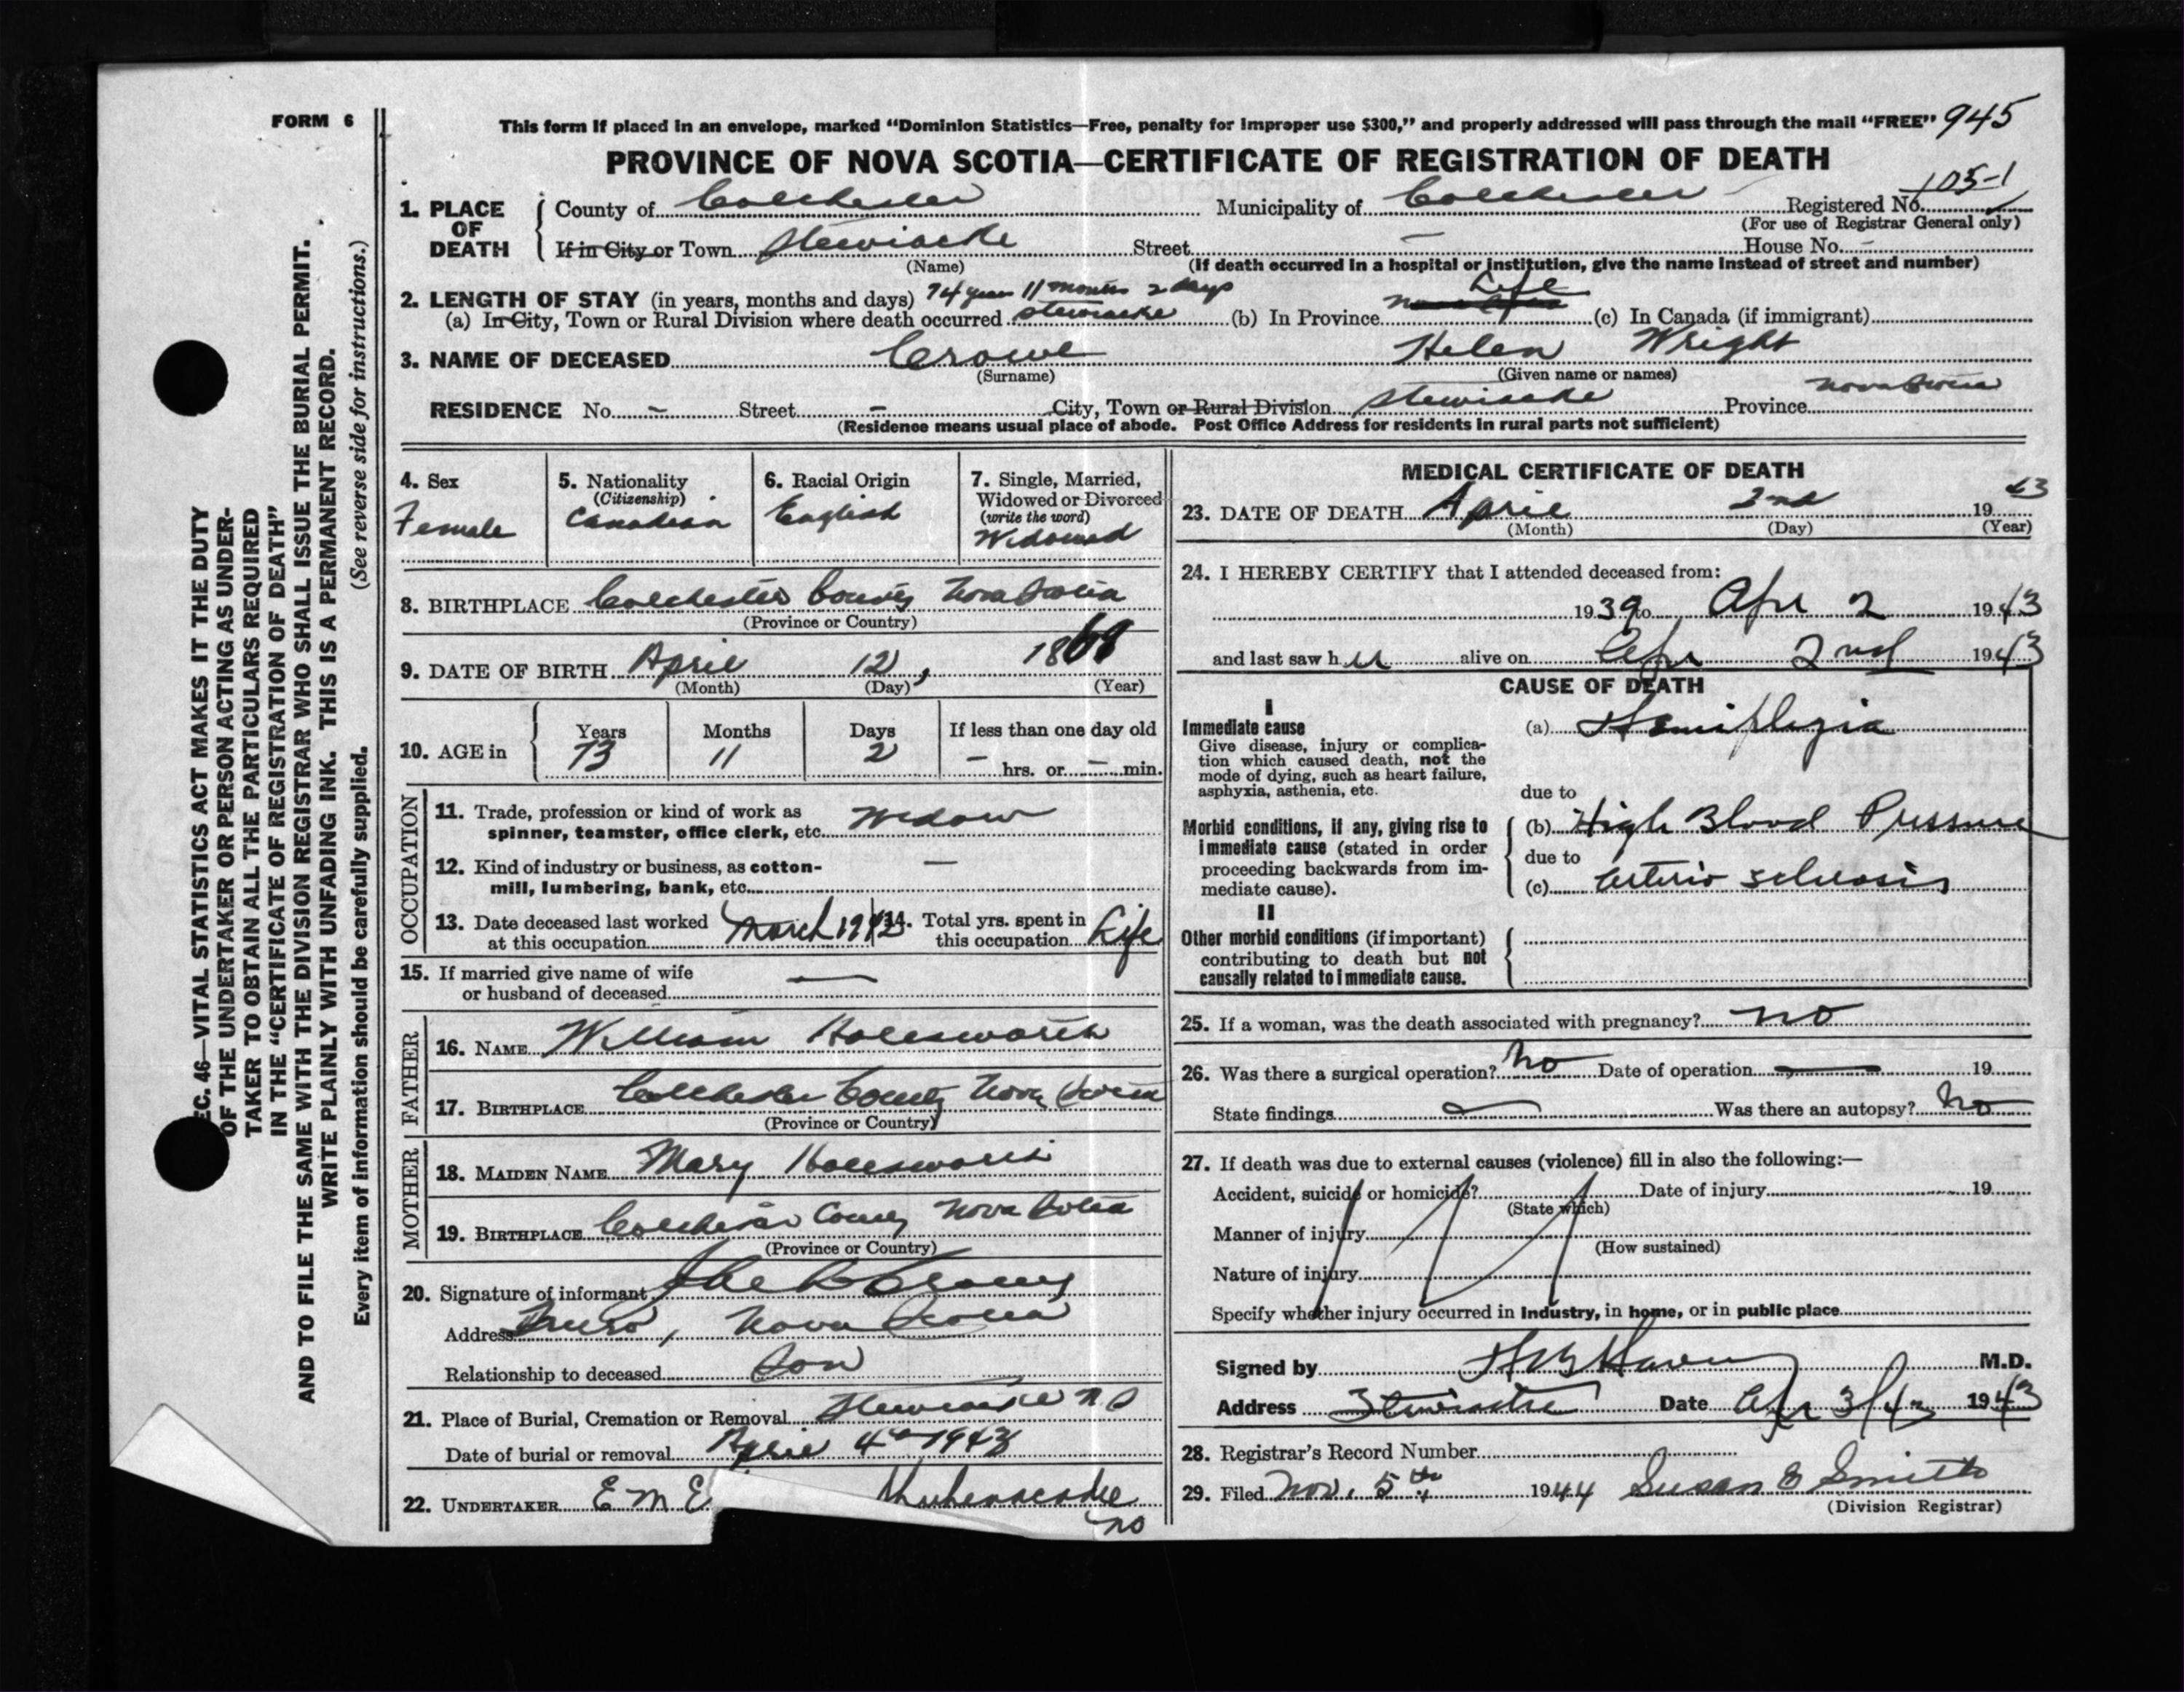 FORM 6
This form if placed in an envelope, marked “Dominion Statistics—Free, penalty for improper use $300,” and properly addressed will pass through the mail “FREE” 945
PROVINCE OF NOVA SCOTIA—CERTIFICATE OF REGISTRATION OF DEATH
1. PLACE OF DEATH
County of Colchester Municipality of Colchester Registered No. 105-1
(For use of Registrar General only)
If in City or Town Stewiacke Street – House No. –
(Name) (If death occurred in a hospital or institution, give the name instead of street and number)
2. LENGTH OF STAY (in years, months and days) 74 years 11 months 2 days
(a) In City, Town or Rural Division where death occurred Stewiacke (b) In Province Life (c) In Canada (if immigrant)
3. NAME OF DECEASED Crowe Helen Wright
(Surname) (Given name or names)
RESIDENCE No. – Street – City, Town or Rural Division Stewiacke Province Nova Scotia
(Residence means usual place of abode. Post Office Address for residents in rural parts not sufficient)
4. Sex
Female
5. Nationality
(Citizenship)
Canadian
6. Racial Origin
English
7. Single, Married,
Widowed or Divorced
(write the word)
Widowed
8. BIRTHPLACE Colchester County Nova Scotia
(Province or Country)
9. DATE OF BIRTH April 12, 1869
(Month) (Day) (Year)
10. AGE in
Years Months Days If less than one day old
73 11 2 – hrs. or – min.
OCCUPATION
11. Trade, profession or kind of work as
spinner, teamster, office clerk, etc. Widow
12. Kind of industry or business, as cotton-
mill, lumbering, bank, etc. —
13. Date deceased last worked
at this occupation March 1942
14. Total yrs. spent in
this occupation Life
15. If married give name of wife
or husband of deceased —
FATHER
16. NAME William Holesworth
17. BIRTHPLACE Colchester County Nova Scotia
(Province or Country)
MOTHER
18. MAIDEN NAME Mary Holesworth
19. BIRTHPLACE Colchester County Nova Scotia
(Province or Country)
20. Signature of informant
Address Truro, Nova Scotia
Relationship to deceased Son
21. Place of Burial, Cremation or Removal Stewiacke N S
Date of burial or removal April 4th 1943
22. UNDERTAKER E M E Shubenacadie
NS
MEDICAL CERTIFICATE OF DEATH
23. DATE OF DEATH April 2nd 1943
(Month) (Day) (Year)
24. I HEREBY CERTIFY that I attended deceased from:
1939 to Apr 2 1943
and last saw her alive on Apr 2nd 1943
CAUSE OF DEATH
I
Immediate cause
Give disease, injury or complica-
tion which caused death, not the
mode of dying, such as heart failure,
asphyxia, asthenia, etc.
(a) Hemiplegia
due to
Morbid conditions, if any, giving rise to
immediate cause (stated in order
proceeding backwards from im-
mediate cause).
(b) High Blood Pressure
due to
(c) Arterio sclerosis
II
Other morbid conditions (if important)
contributing to death but not
causally related to immediate cause.
25. If a woman, was the death associated with pregnancy? no
26. Was there a surgical operation? No Date of operation — 19
State findings Was there an autopsy? No
27. If death was due to external causes (violence) fill in also the following:—
Accident, suicide or homicide? Date of injury 19
(State which)
Manner of injury
(How sustained)
Nature of injury
Specify whether injury occurred in Industry, in home, or in public place
Signed by M.D.
Address Stewiacke Date Apr 3/43 1943
28. Registrar's Record Number
29. Filed Nov. 5th 1944 Susan E Smith
(Division Registrar)
EC. 46—VITAL STATISTICS ACT MAKES IT THE DUTY
OF THE UNDERTAKER OR PERSON ACTING AS UNDER-
TAKER TO OBTAIN ALL THE PARTICULARS REQUIRED
IN THE “CERTIFICATE OF REGISTRATION OF DEATH”
AND TO FILE THE SAME WITH THE DIVISION REGISTRAR WHO SHALL ISSUE THE BURIAL PERMIT.
WRITE PLAINLY WITH UNFADING INK. THIS IS A PERMANENT RECORD.
Every item of information should be carefully supplied. (See reverse side for instructions.)